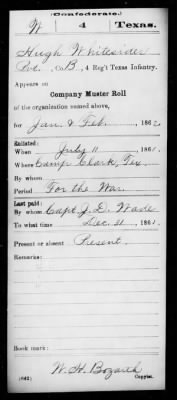 Confederate.
W 4 Texas.
Hugh Whitesider
Pvt., Co. B, 4 Reg't Texas Infantry.
Appears on
Company Muster Roll
of the organization named above,
for Jan. & Feb. 1862
Enlisted:
When July 11 1861.
Where Camp Clark, Tex.
By whom
Period For the War
Last paid:
By whom Capt. J. D. Wade
To what time Dec. 31 1861.
Present or absent Present.
Remarks:
Book mark:
W. H. Bozarth
(642) Copyist.